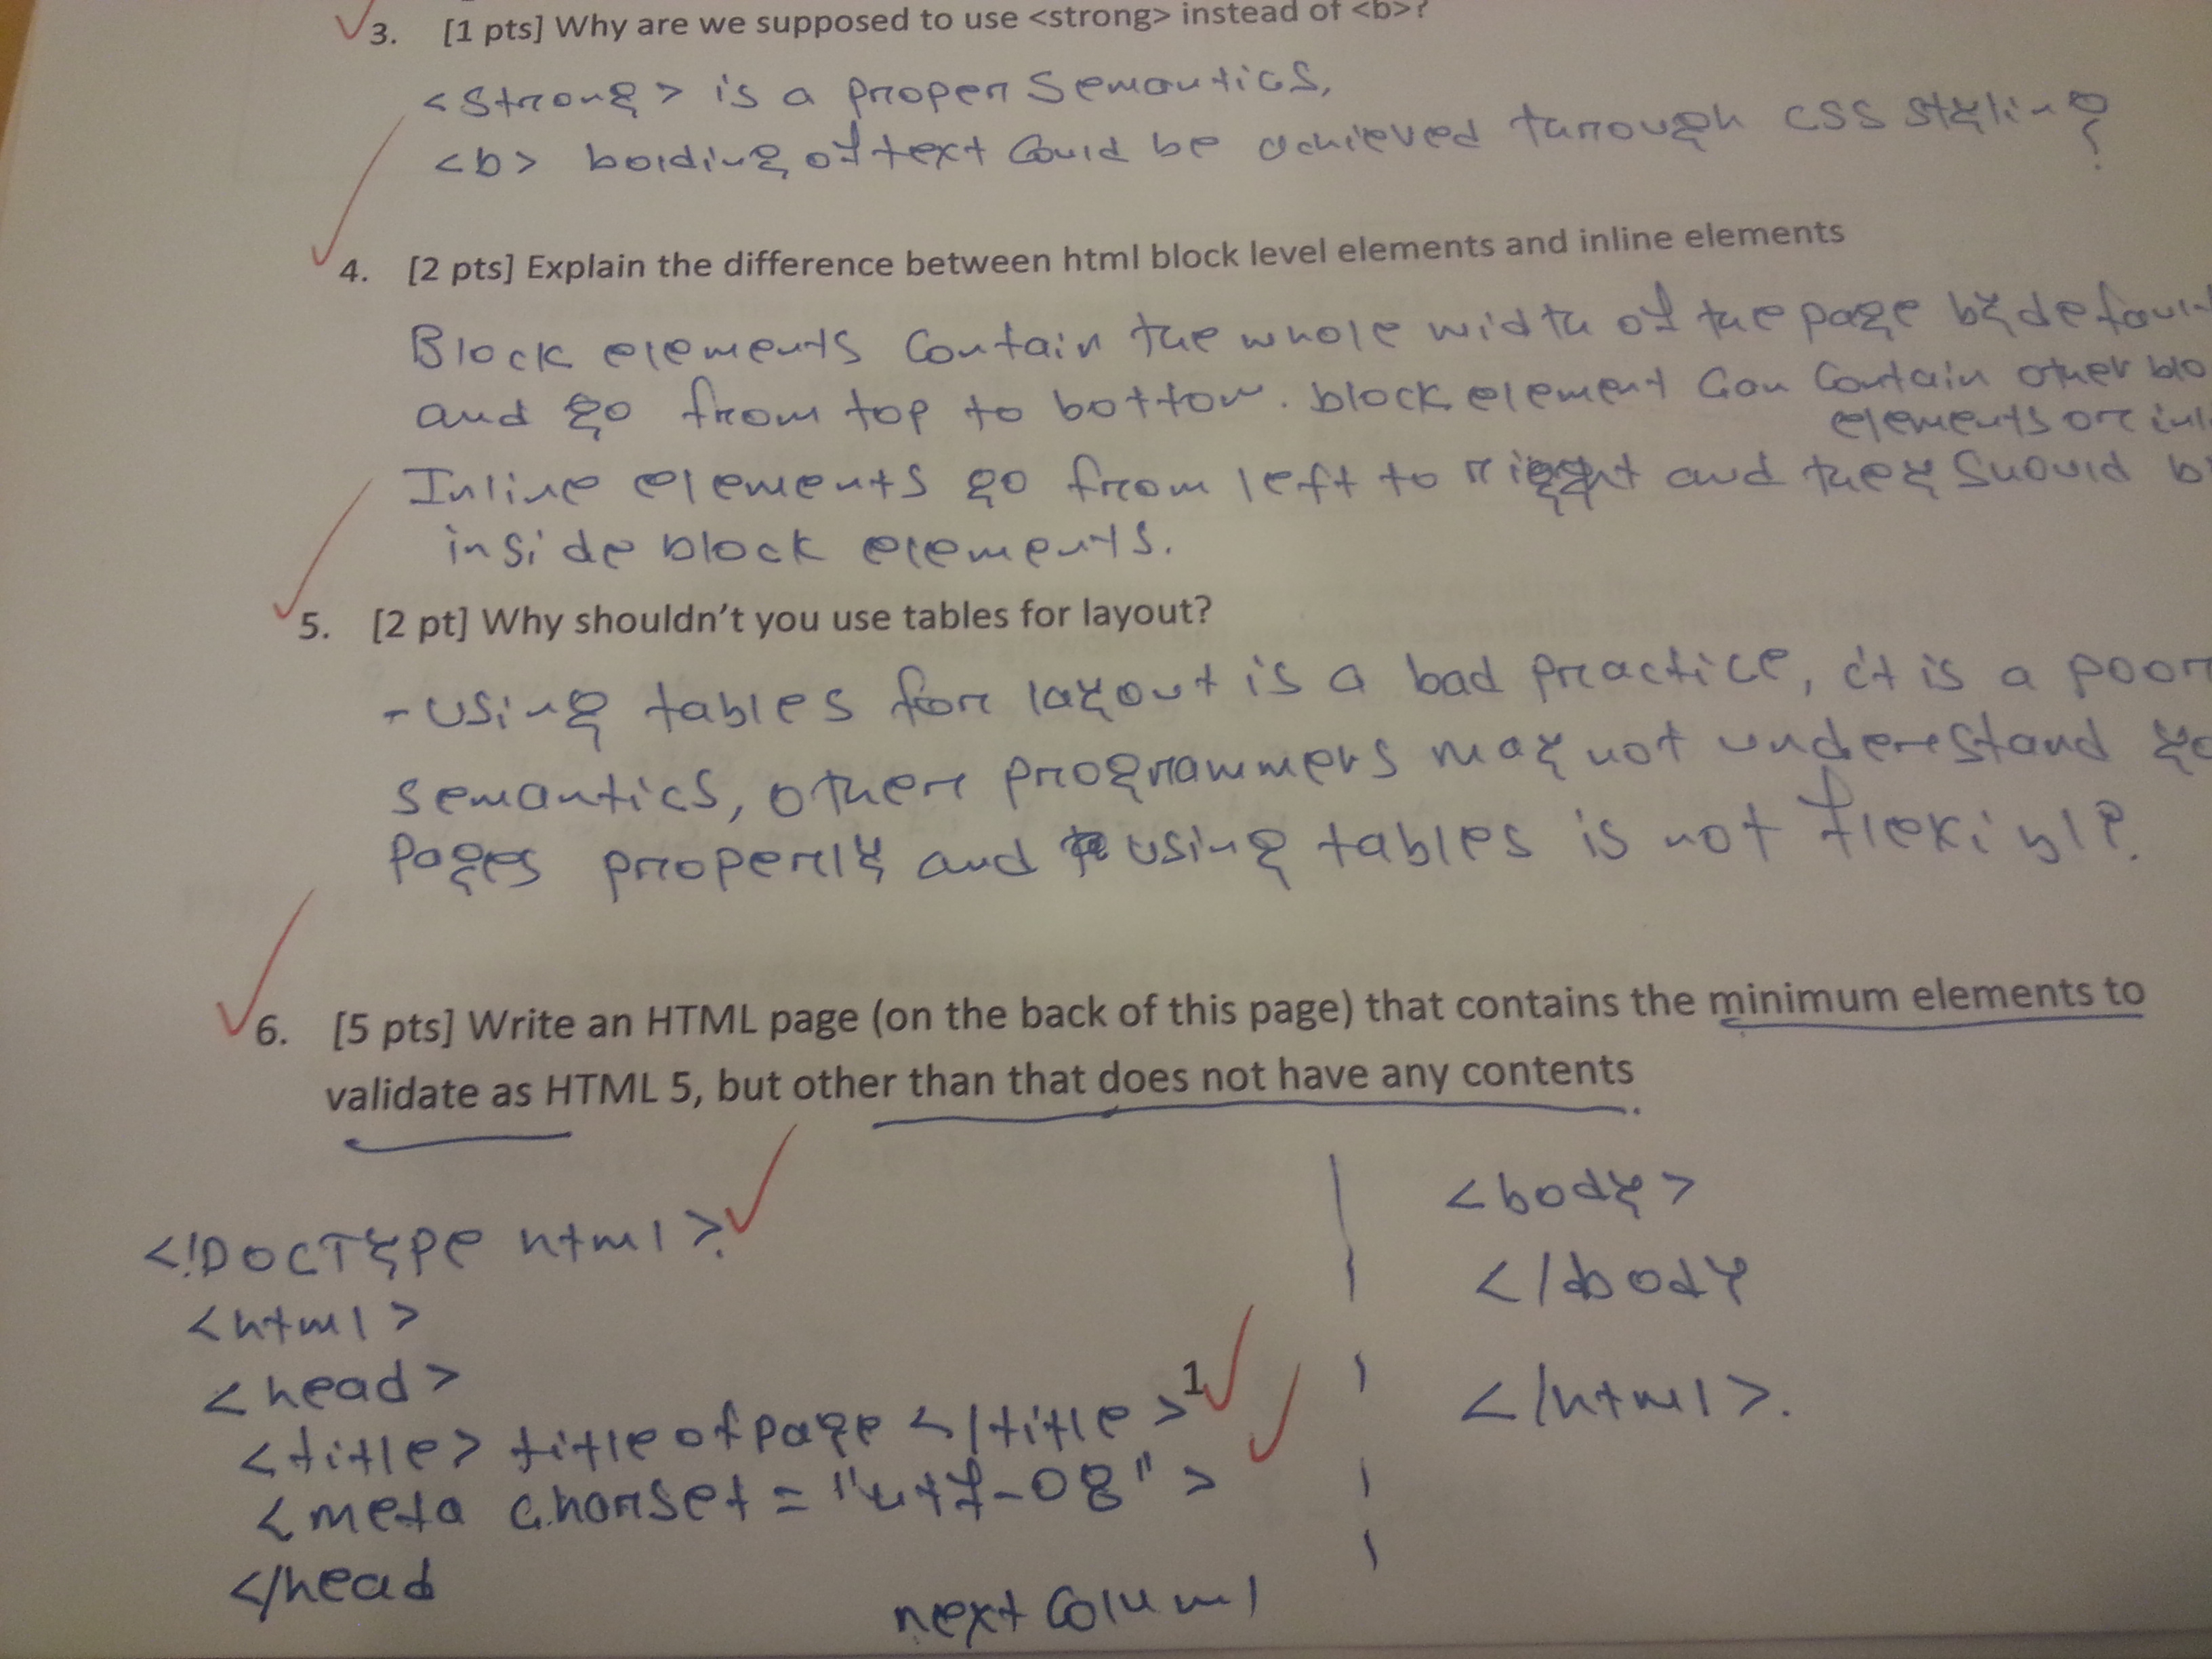 3. [1 pts] Why are we supposed to use <strong> instead of <b>?
<strong> is a proper semantics,
<b> bolding of text could be achieved through CSS styling
4. [2 pts] Explain the difference between html block level elements and inline elements
Block elements contain the whole width of the page by defaul
and go from top to bottom. block element can contain other blo
elements or inli
Inline elements go from left to right and they should b
inside block elements.
5. [2 pt] Why shouldn't you use tables for layout?
- using tables for layout is a bad practice, it is a poor
semantics, other programmers may not understand yo
pages properly and using tables is not flexible.
6. [5 pts] Write an HTML page (on the back of this page) that contains the minimum elements to
validate as HTML 5, but other than that does not have any contents.
<!DOCTYPE html>
<html>
<head>
<title> title of page </title>
1
<meta charset = "utf-08">
</head
next Colum
<body>
</body
</html>.